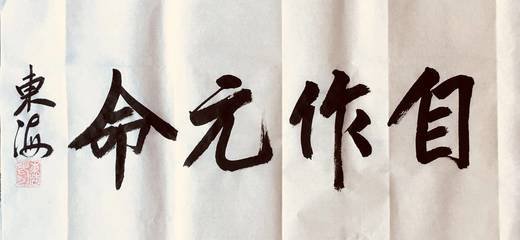 自作元命
東海